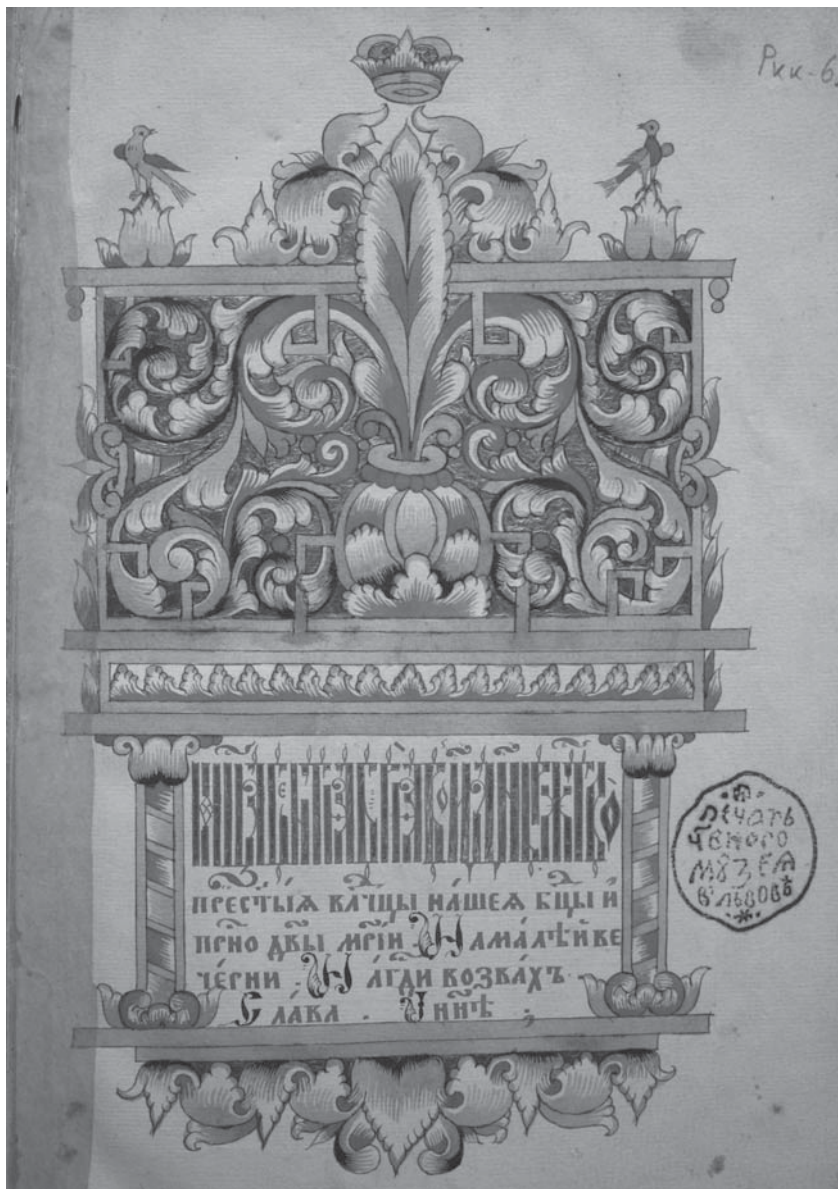 Ркк-6
престыѧ влчцы на́шеѧ бцы и҆
прно двы мрі́и . На ма́лѣй ве
че́рни . На́ гди возва́хъ .
Сла́ва . И ннѣ ;
печать
мꙋзеѧ
в львовѣ